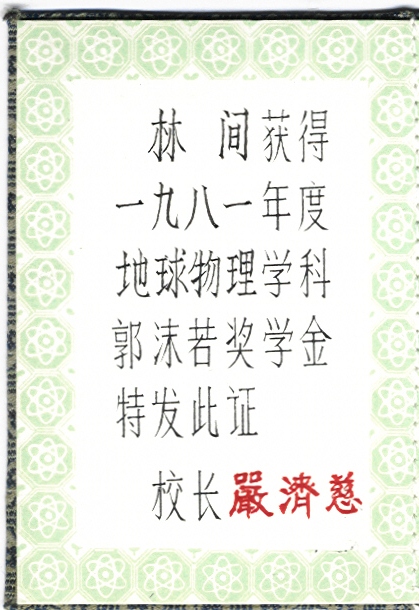 林 间 获得
一九八一年度
地球物理学科
郭沫若奖学金
特发此证
校长 嚴濟慈